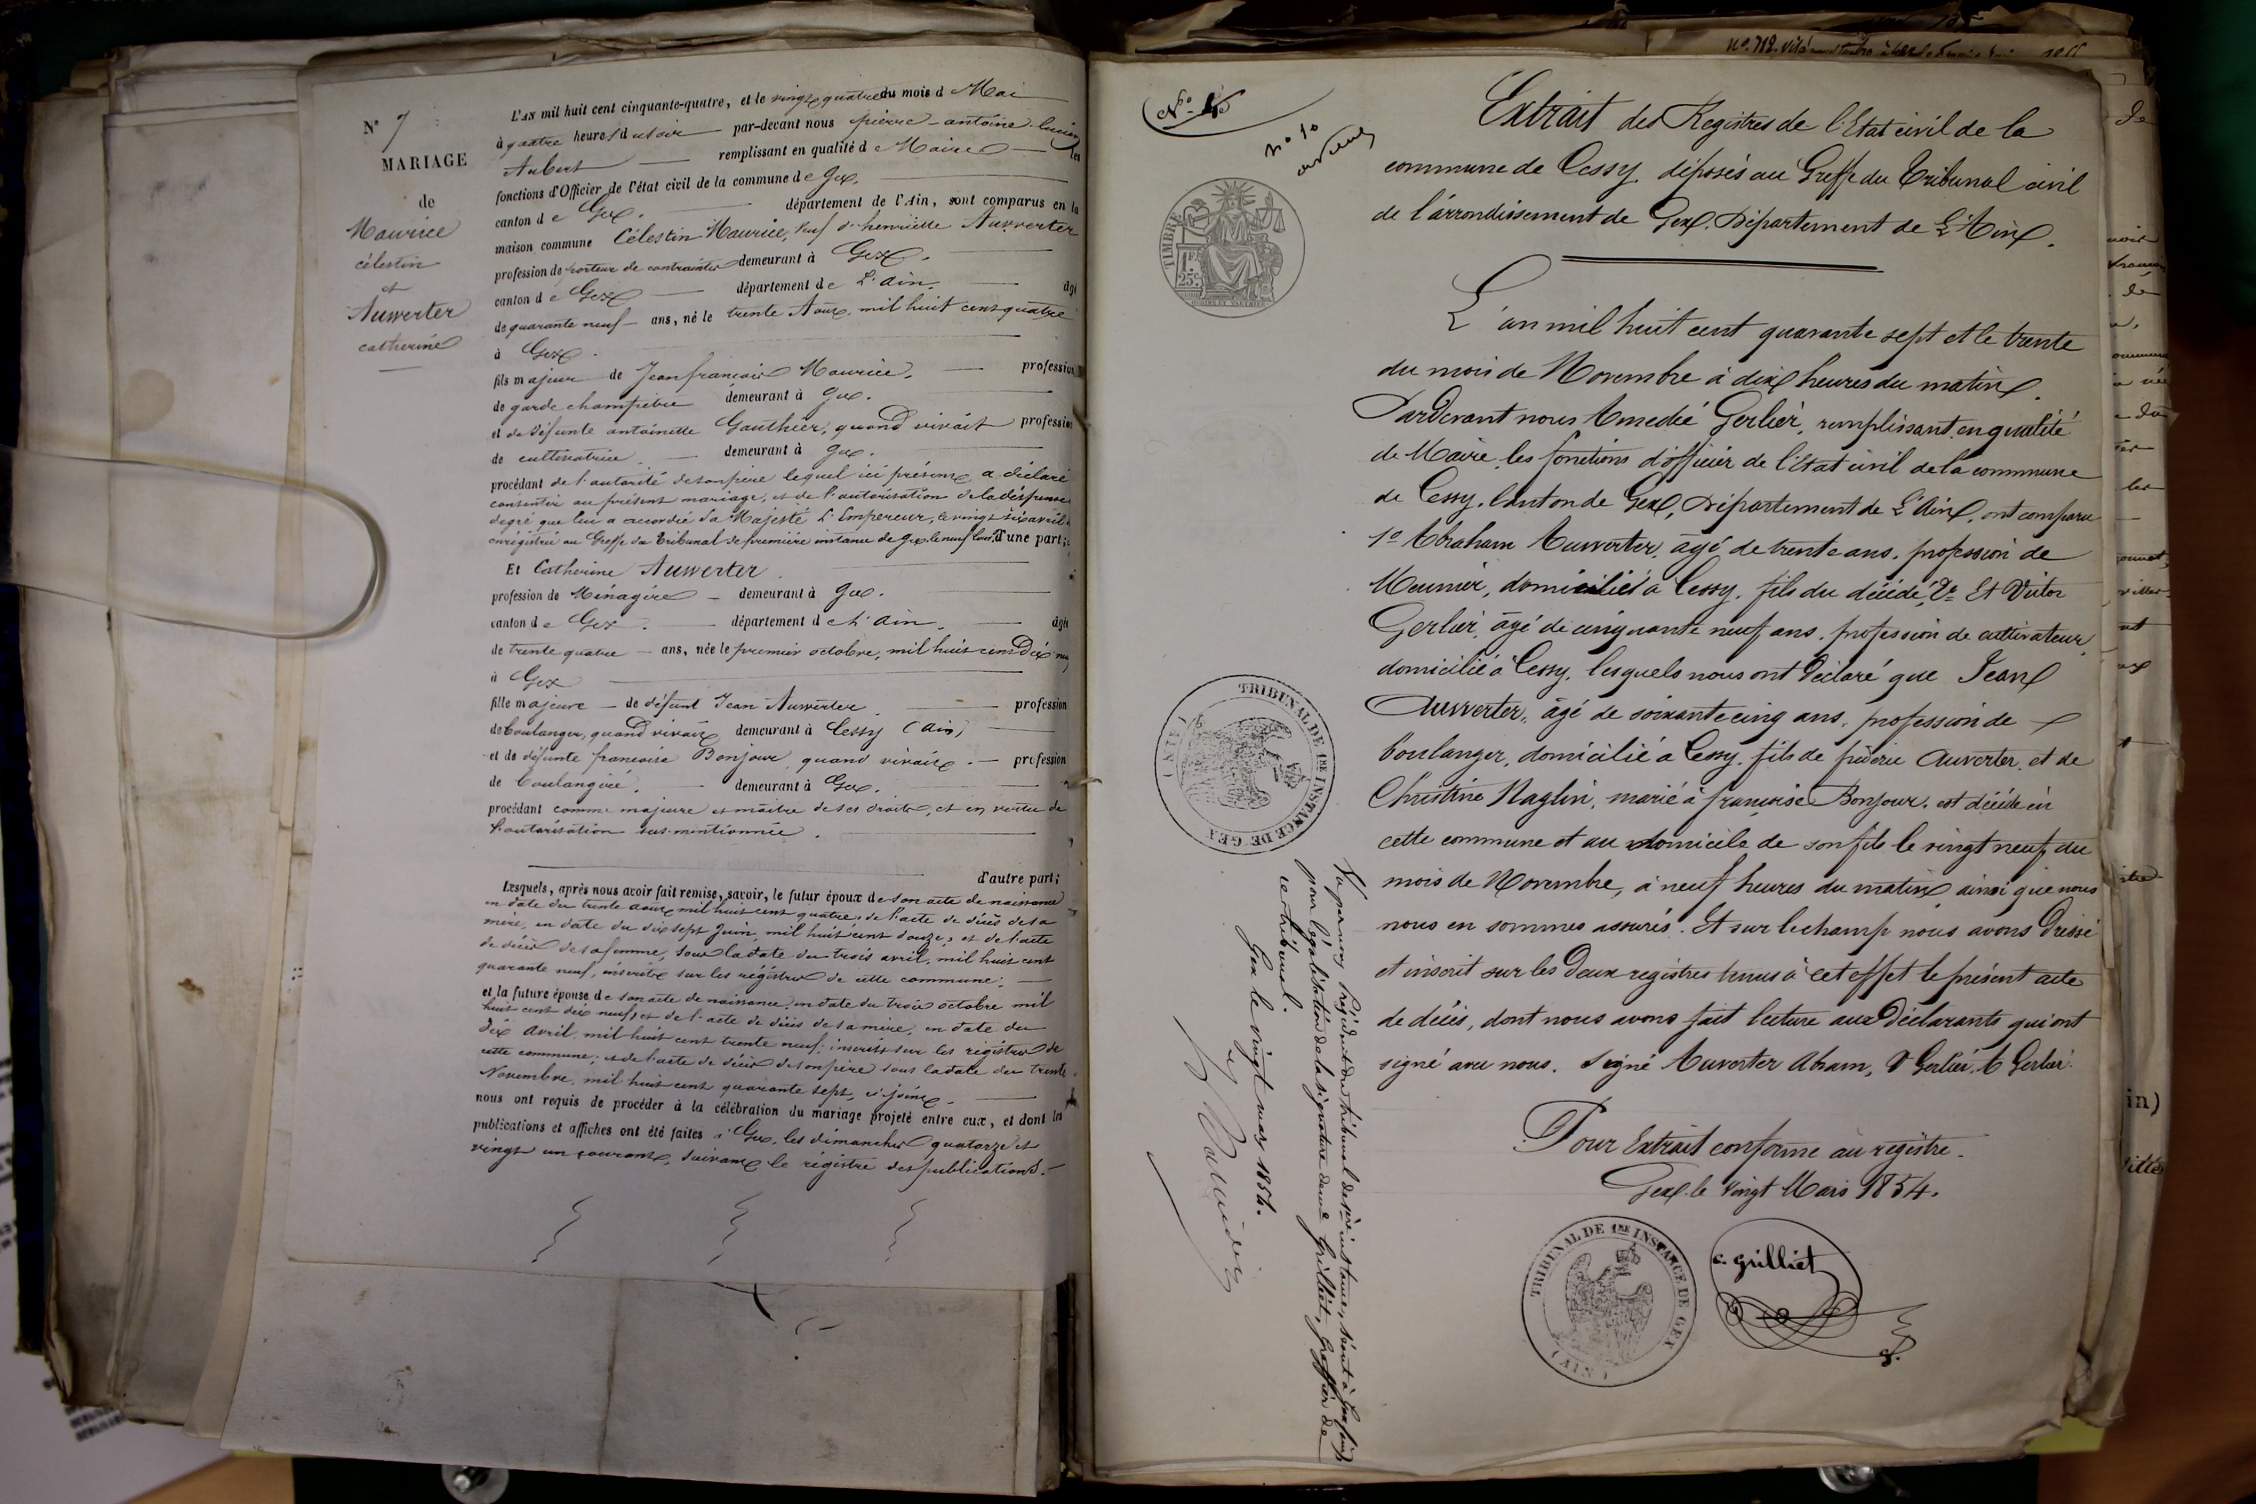 N° 7
MARIAGE
de
Maurice
célestin
et
Auwerter
catherine
L'AN mil huit cent cinquante-quatre, et le vingt quatre du mois d Mai
à quatre heures d u soir par-devant nous pierre-antoine-lucien
Aubert remplissant en qualité d e Maire les
fonctions d'Officier de l'état civil de la commune d e Gex.
canton d e Gex. département de l'Ain, sont comparus en la
maison commune Célestin Maurice, veuf d'henriette Auwerter
profession de porteur de contraintes demeurant à Gex.
canton d e Gex département d e L'ain. âgé
de quarante neuf ans, né le trente Aout mil huit cent quatre
à Gex.
fils majeur de Jean françois Maurice. profession
de garde champêtre demeurant à Gex.
et de défunte antoinette Gauthier, quand vivait profession
de cultivatrice demeurant à Gex.
procédant de l'autorité de son père lequel ici présent a déclaré
consentir au présent mariage, et de l'autorisation de la dispense
degré que lui a accordée Sa Majesté L'Empereur, le vingt six avril
enrégistrée au Greffe du Tribunal de première instance de Gex le neuf d'une part;
Et Catherine Auwerter
profession de Ménagère demeurant à Gex.
canton d e Gex. département d e L'ain. âgée
de trente quatre ans, née le premier octobre, mil huit cent Dix neuf
à Gex
fille majeure de défunt Jean Auwerter profession
de boulanger, quand vivait demeurant à Cessy (Ain)
et de défunte françoise Bonjour, quand vivait profession
de boulangère. demeurant à Gex.
procédant comme majeure et maître de ses droits, et en vertu de
l'autorisation sus-mentionnée.
d'autre part;
Lesquels, après nous avoir fait remise, savoir, le futur époux de son acte de naissance
en date du trente aout mil huit cent quatre, de l'acte de décès de sa
mère, en date du dix sept Juin, mil huit cent douze, et de l'acte
de décès de sa femme, sous la date du trois avril, mil huit cent
quarante neuf, inscrits sur les régistres de cette commune;
et la future épouse de son acte de naissance en date du trois octobre mil
huit cent dix neuf, et de l'acte de décès de sa mère, en date du
dix avril mil huit cent trente neuf; inscrits sur les régistres de
cette commune; et de l'acte de décès de son père sous la date du trente
Novembre, mil huit cent quarante sept, ci-joint.
nous ont requis de procéder à la célébration du mariage projeté entre eux, et dont les
publications et affiches ont été faites à Gex, les dimanches quatorze et
vingt un courant, suivant le régistre des publications.
N° 718
N°
n° 10
TIMBRE
1 F.
25 c.
Extrait des Registres de l'Etat civil de la
commune de Cessy déposés au Greffe du Tribunal civil
de l'arrondissement de Gex, Département de L'Ain.
L'an mil huit cent quarante sept et le trente
du mois de Novembre à dix heures du matin.
Pardevant nous Amedié Gerlier, remplissant en qualité
de Maire, les fonctions d'officier de l'Etat civil de la commune
de Cessy, Canton de Gex, Département de L'Ain, ont comparu
1° Abraham Auwerter, âgé de trente ans, profession de
Meunier, domicilié à Cessy, fils du décédé, 2° Et Victor
Gerlier, âgé de cinquante neuf ans, profession de cultivateur,
domicilié à Cessy, lesquels nous ont déclaré que Jean
Auwerter, âgé de soixante cinq ans, profession de
boulanger, domicilié à Cessy, fils de fréderic Auverter, et de
Christine Naglin, marié à françoise Bonjour, est décédé en
cette commune et au domicile de son fils le vingt neuf du
mois de Novembre, à neuf heures du matin, ainsi que nous
nous en sommes assurés. Et sur le champ nous avons dressé
et inscrit sur les deux registres tenus à cet effet le présent acte
de décès, dont nous avons fait lecture aux déclarants qui ont
signé avec nous. Signé Auverter Abram, V Gerlier, A Gerlier.
Pour Extrait conforme au registre.
Gex, le Vingt Mars 1854.
TRIBUNAL DE 1RE INSTANCE DE GEX (AIN)
C. Grilliet
TRIBUNAL DE 1RE INSTANCE DE GEX (AIN)
Vu par nous Président du tribunal de 1ère instance, séant à Gex
pour légalisation de la signature de Mr Grilliet, greffier de
ce tribunal.
Gex le vingt mars 1854.
in)